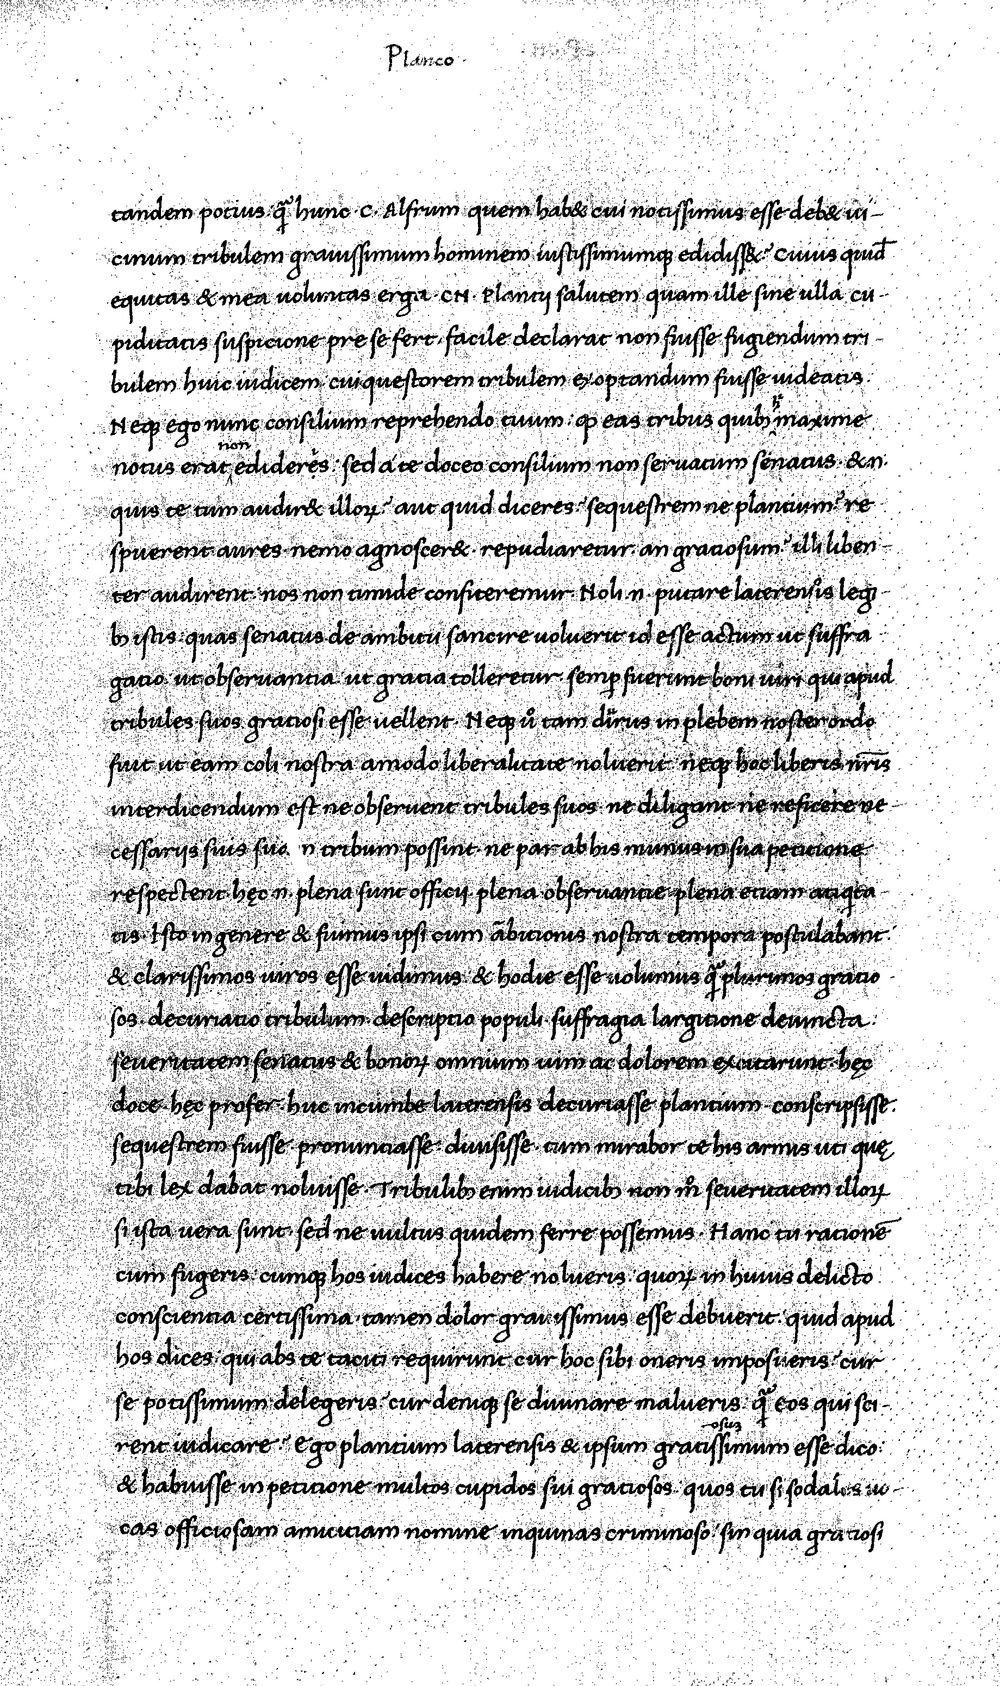 Planco
tandem potius q̃ hunc C. Alfrum quem hab& cui notissimus esse deb& ui-
cinum tribulem grauissimum hominem iustissimumq; edidiss&? Cuius quid̃
equitas & mea uoluntas erga CN. Plancij salutem quam ille sine ulla cu-
piditatis suspicione pre se fert. facile declarat non fuisse fugiendum tri-
bulem huic iudicem cui questorem tribulem exoptandum fuisse uideatis.
Neq; ego nunc consilium reprehendo tuum: ꝙ eas tribus quib; maxime
notus erat non edideres: sed a te doceo consilium non seruatum senatus. & n.
quis te tum audir& illoꝝ? aut quid diceres? sequestrem ne plancium? re
spuerent aures. nemo agnoscer&. repudiaretur. an gratiosum? illi liben-
ter audirent. nos non timide confiteremur. Noli .n. putare laterensis legi-
b; istis quas senatus de ambitu sancire uoluerit id esse actum ut suffra
gatio ut obseruantia. ut gratia tolleretur. semꝑ fuerunt boni uiri qui apud
tribules suos gratiosi esse uellent. Neq; u̅ tam durus in plebem noster ordo
fuit ut eam coli nostra amodo liberalitate noluerit. neq; hoc liberis nr̅is
interdicendum est ne obseruent tribules suos ne diligant ne reficere ne-
cessarijs suis suã n tribum possint. ne par ab his munus in sua petitione
respectent hęc .n. plena sunt officij. plena obseruantie plena etiam
tis. Isto in genere & fuimus ipsi cum ãbitionis nostra tempora postulabant.
& clarissimos uiros esse uidimus & hodie esse uolumus q̃ plurimos gratio
sos. decuriatio tribulum. descriptio populi. suffragia largitione deuincta.
seueritatem senatus & bonoꝝ omnium uim ac dolorem excitarunt. hęc
doce. hęc profer. huc incumbe laterensis decuriasse plancium. conscripsisse.
sequestrem fuisse. pronuntiasse. diuisisse. tum mirabor te his armis uti quę
tibi lex dabat noluisse. Tribulib; enim iudicib; non m̊ seueritatem illoꝝ
si ista uera sunt. sed ne uultus quidem ferre possemus. Hanc tu rationẽ
cum fugeris cumq; hos iudices habere nolueris. quoꝝ in huius delicto
conscientia certissima. tamen dolor grauissimus esse debuerit. quid apud
hos dices. qui abs te taciti requirunt cur hoc sibi oneris imposueris? cur
se potissimum delegeris? cur deniq; se diuinare malueris. q̃ eos qui sci-
rent iudicare? Ego plancium laterensis & ipsum gratissimum esse dico:
& habuisse in petitione multos cupidos sui gratiosos. quos tu si sodales uo-
cas officiosam amicitiam nomine inquinas criminoso. sin quia gratiosi